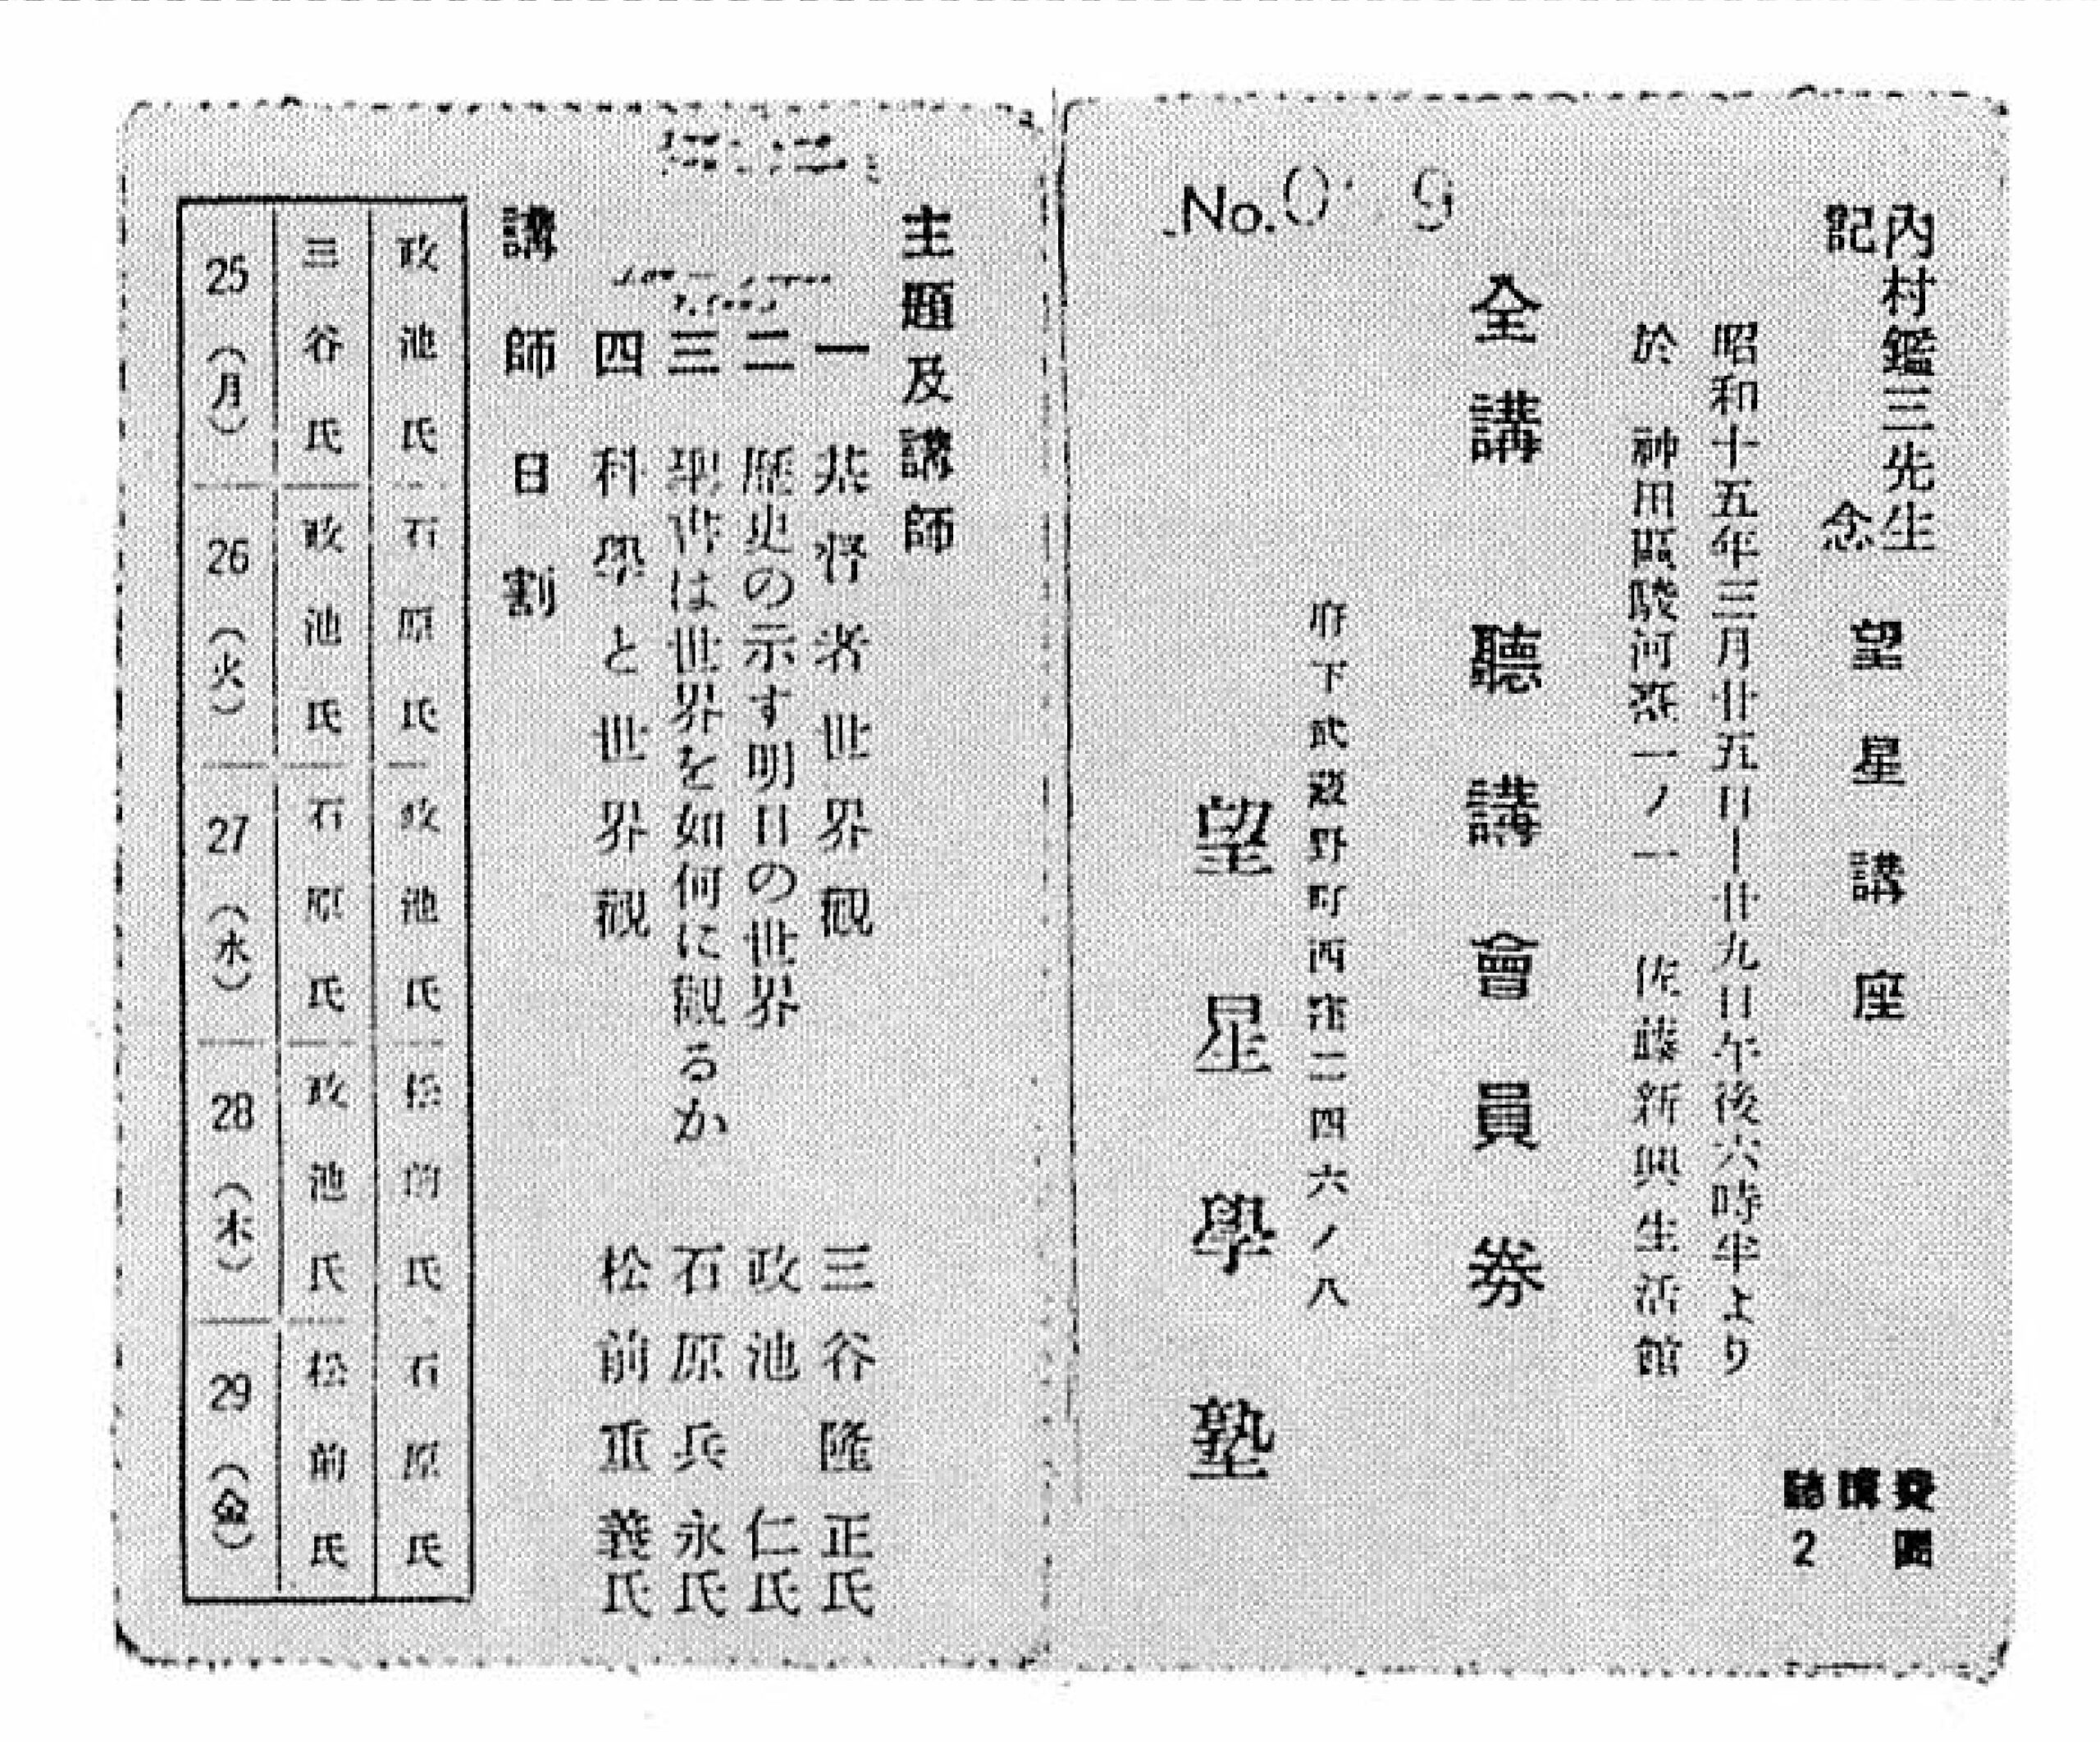 內村鑑三先生
記念
望星講座
費圓
聽講
2
昭和十五年三月廿五日―廿九日午後六時半より
於 神田區駿河臺一ノ一 佐藤新興生活館
全講 聽講會員券
府下武藏野町西窪二四六ノ八
望星學塾
No.0 9
主題及講師
一 基督者世界觀 三谷隆正氏
二 歷史の示す明日の世界 政池仁氏
三 聖書は世界を如何に觀るか 石原兵永氏
四 科學と世界觀 松前重義氏
講師日割
政池氏 石原氏 政池氏 松前氏 石原氏
三谷氏 政池氏 石原氏 政池氏 松前氏
25(月) 26(火) 27(水) 28(木) 29(金)